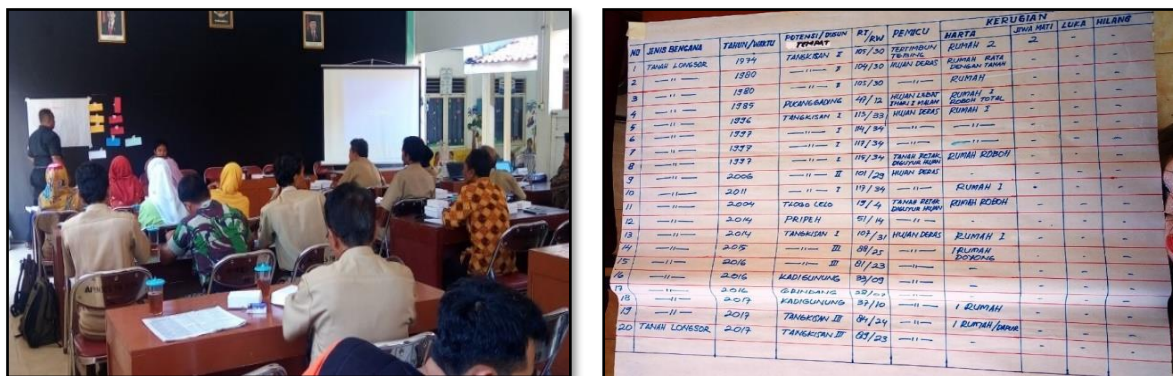 KERUGIAN
NO JENIS BENCANA TAHUN/WAKTU POTENSI/DUSUN TEMPAT RT/RW PEMICU HARTA JIWA MATI LUKA HILANG
1 TANAH LONGSOR 1974 TANGKISAN I 105/30 TERTIMBUN TEBING RUMAH 2 2 - -
2 —"— 1980 —"— I 104/30 HUJAN DERAS RUMAH RATA DENGAN TANAH - - -
3 —"— 1980 —"— I 105/30 —"— RUMAH - - -
4 —"— 1985 PUCANGGADING 49/12 HUJAN LEBAT 2 HARI 2 MALAM RUMAH I ROBOH TOTAL - - -
5 —"— 1996 TANGKISAN I 115/33 HUJAN DERAS RUMAH I - - -
6 —"— 1997 —"— I 114/34 —"— —"— - - -
7 —"— 1997 —"— I 117/34 —"— —"— - - -
8 —"— 1997 —"— I 115/34 TANAH RETAK DIGUYUR HUJAN RUMAH ROBOH - - -
9 —"— 2006 —"— II 101/29 HUJAN DERAS - - - -
10 —"— 2011 —"— I 119/34 —"— RUMAH I - - -
11 —"— 2004 TLOGO LELO 19/4 TANAH RETAK DIGUYUR HUJAN RUMAH ROBOH - - -
12 —"— 2014 PRIPEH 51/14 —"— - - - -
13 —"— 2014 TANGKISAN I 107/31 HUJAN DERAS RUMAH I - - -
14 —"— 2015 —"— III 88/25 —"— 1 RUMAH DOYONG - - -
15 —"— 2016 —"— III 81/23 —"— - - - -
16 —"— 2016 KADIGUNUNG 33/09 —"— - - - -
17 —"— 2016 GRINDANG —"— - - - -
18 —"— 2017 KADIGUNUNG 37/10 —"— 1 RUMAH - - -
19 —"— 2017 TANGKISAN III 84/24 —"— 1 RUMAH/DAPUR - - -
20 TANAH LONGSOR 2017 TANGKISAN III 83/23 —"— - - - -